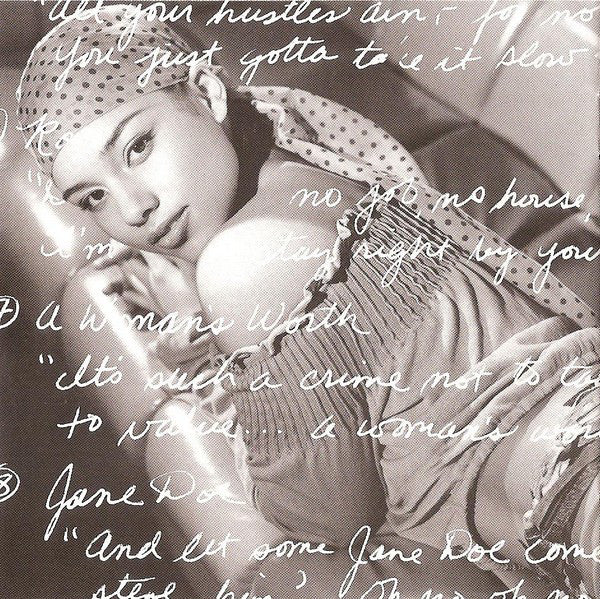 "All your hustles ain't for no
You just gotta take it slow
no job no house
i'm stay right by you
7 A Womans Worth
"It's such a crime not to
to value... a woman's
8 Jane Doe
"And let some Jane Doe come
Oh no oh no